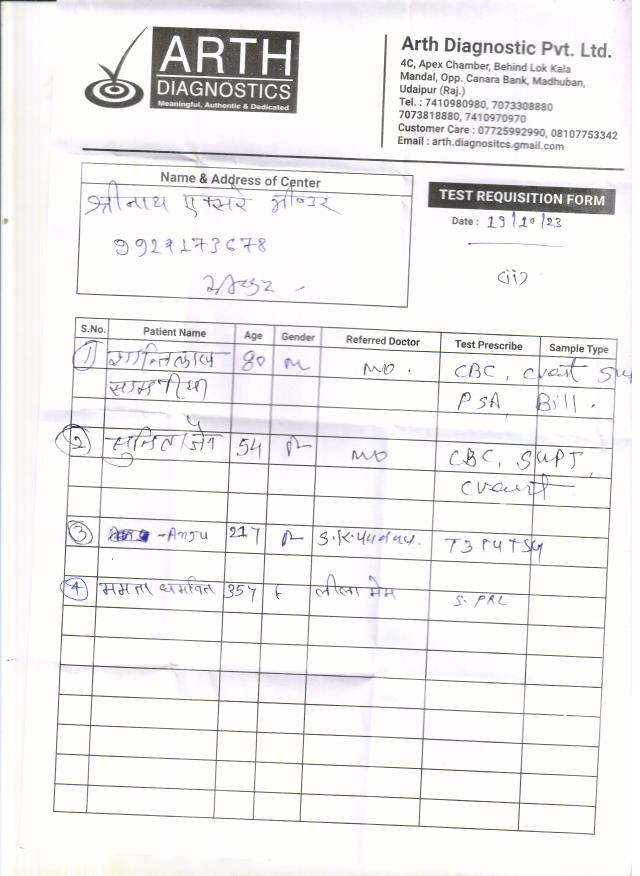 ARTH
DIAGNOSTICS
Meaningful, Authentic & Dedicated
Arth Diagnostic Pvt. Ltd.
4C, Apex Chamber, Behind Lok Kala
Mandal, Opp. Canara Bank, Madhuban,
Udaipur (Raj.)
Tel. : 7410980980, 7073308880
7073818880, 7410970970
Customer Care : 07725992990, 08107753342
Email : arth.diagnositcs.gmail.com
Name & Address of Center
श्रीनाथ एक्सरे भीण्डर
9929173678
TEST REQUISITION FORM
Date : 19/10/23
S.No. Patient Name Age Gender Referred Doctor Test Prescribe Sample Type
1 शान्तिलाल 80 m MO. CBC,
PSA, Bill.
2 सुनिता जैन 54 MO CBC,
3 -Anju 21y T3T4TSH
4 ममता 35y f लीला मेम S. PRL